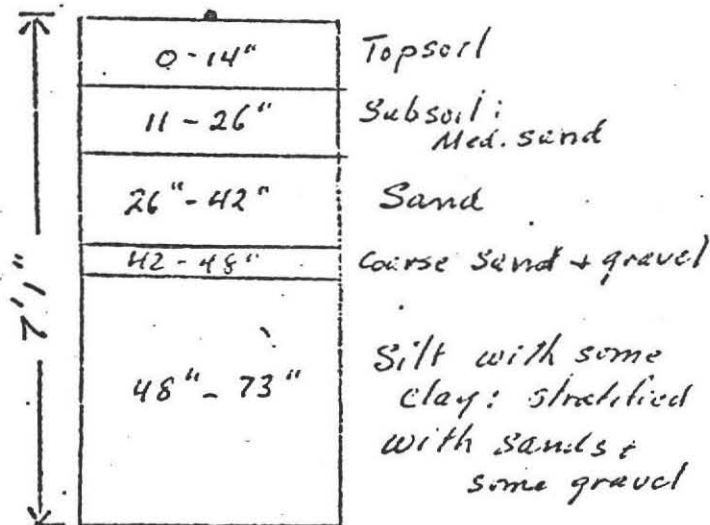 0-14" Topsoil
11 - 26" Subsoil:
Med. sand
26"-42" Sand
42 - 48" Coarse Sand + gravel
7',"
48" - 73" Silt with some
clay: stratified
with sands &
some gravel